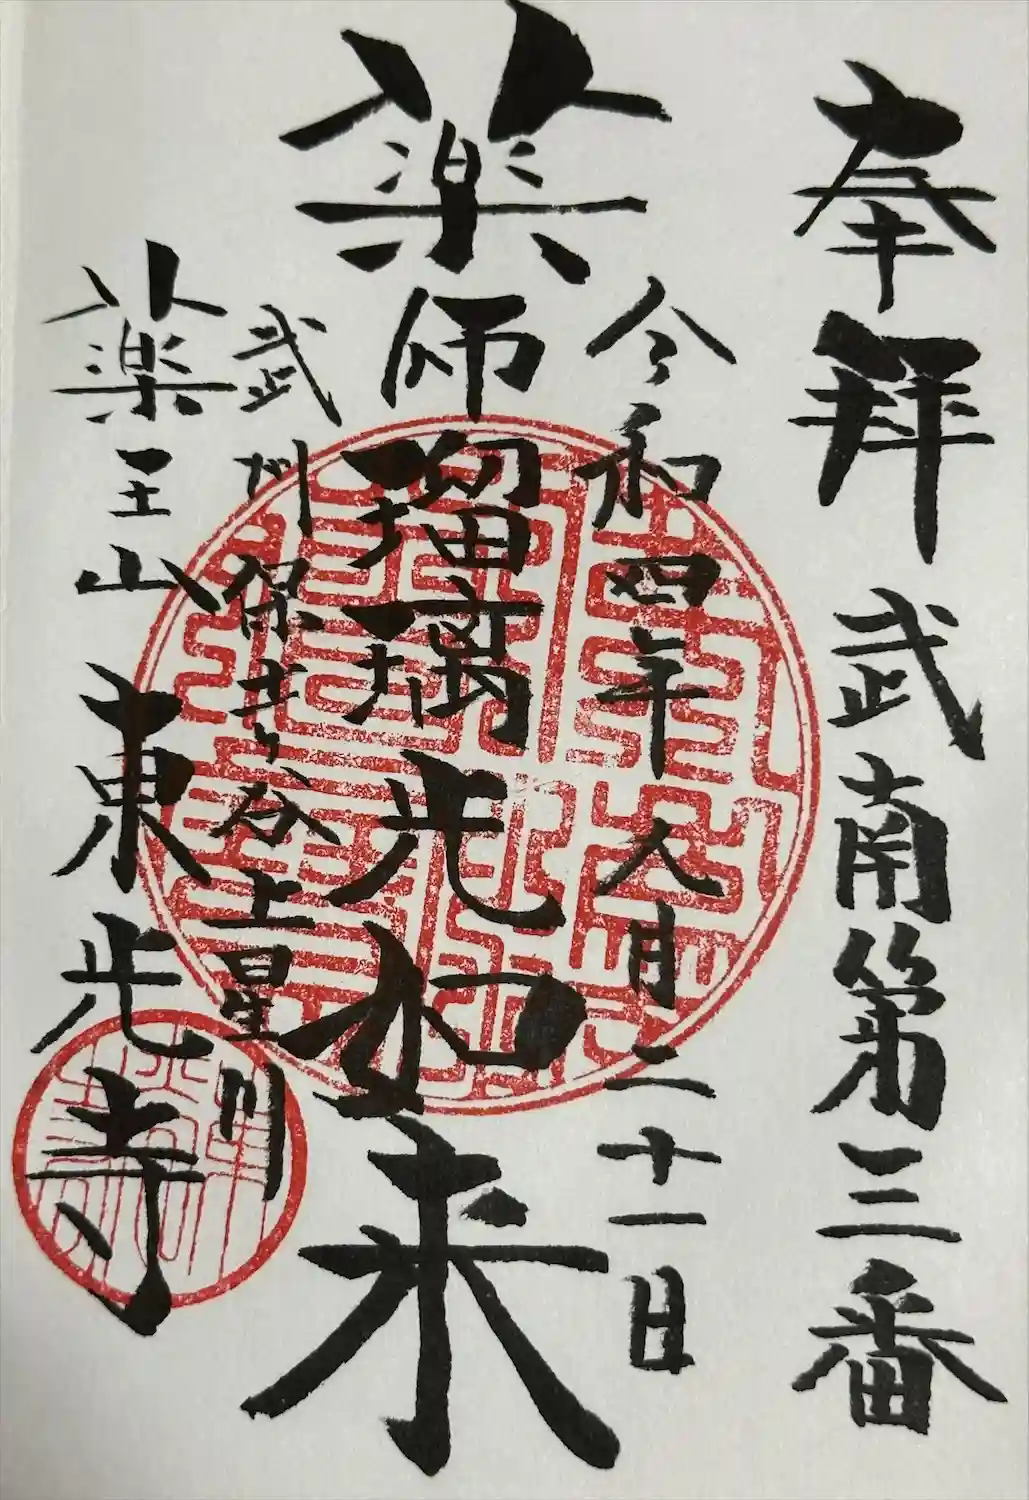 奉拝 武南第三番
令和四年八月二十一日
薬師瑠璃光如来
武州保土ヶ谷上星川
薬王山 東光寺